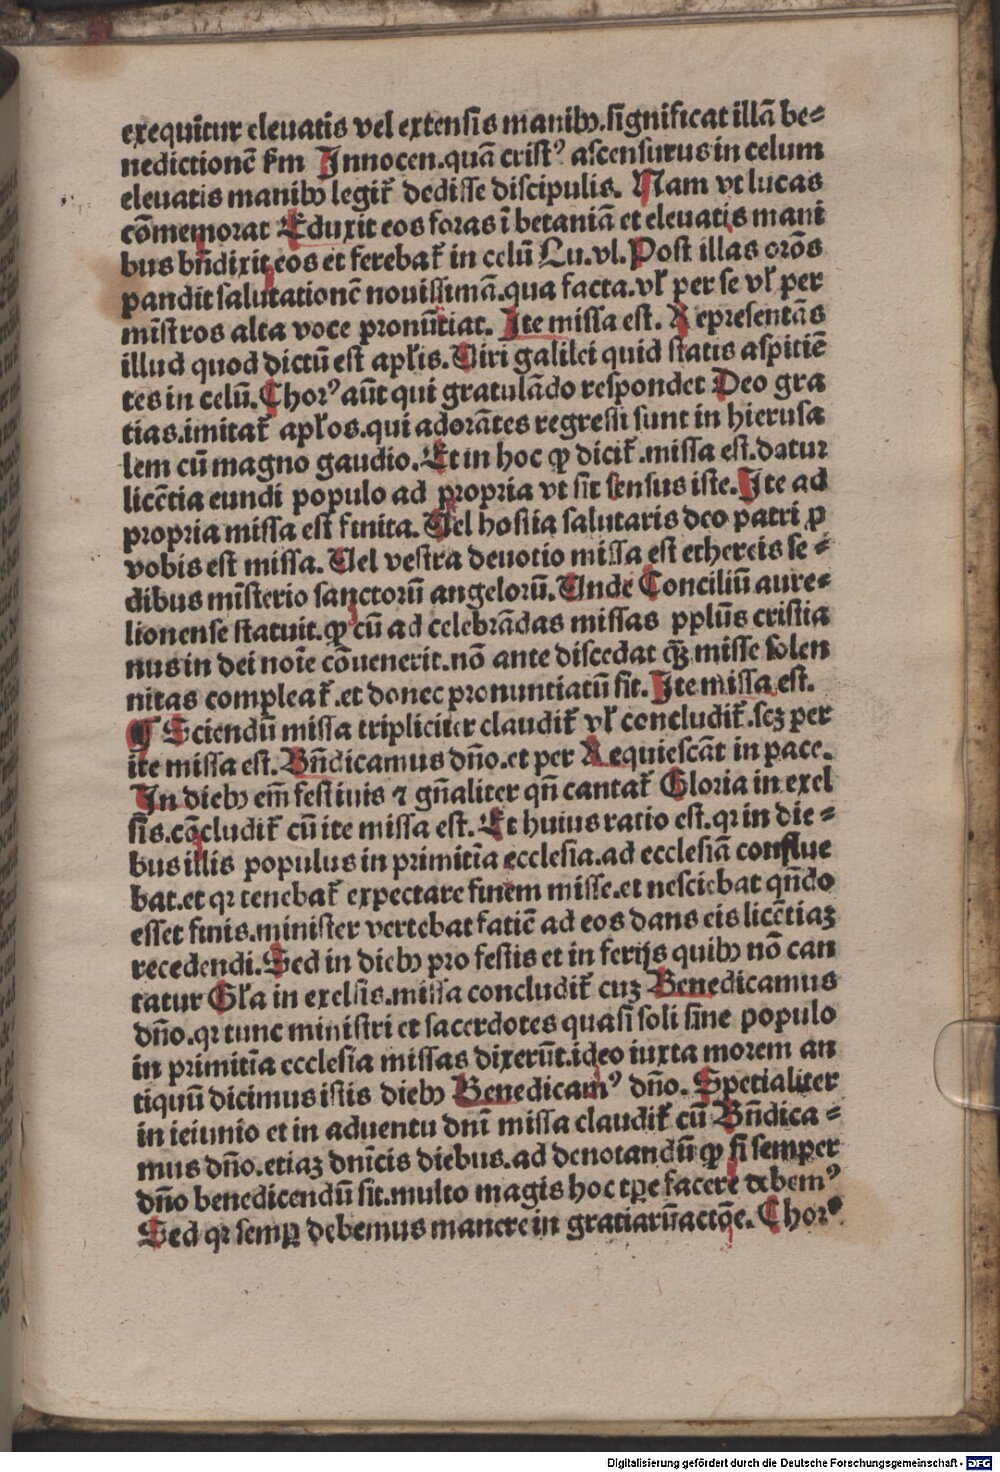 exequūtur eleuatis vel extensis manibꝯ.significat illā be⸗
nedictionē ẜm Innocen.quā crist⁹ ascensurus in celum
eleuatis manibꝯ legit̄ dedisse discipulis. Nam vt lucas
cōmemorat Eduxit eos foras ī betaniā et eleuatis mani
bus bn̄dixit eos et ferebat̄ in celū Lu.vl. Post illas orōs
pandit salutationē nouissimā.qua facta.vl̓ per se vl̓ per
mīstros alta voce pronūtiat. Ite missa est. Representās
illud quod dictū est apl̓is. Viri galilei quid statis aspitiē
tes in celū. Chor⁹ aūt qui gratulādo respondet Deo gra
tias.imitat̄ apl̓os.qui adorātes regressi sunt in hierusa
lem cū magno gaudio. Et in hoc ꝙ dicit̄ .missa est.datur
licētia eundi populo ad propria vt sit sensus iste. Ite ad
propria missa est finita. Vel hostia salutaris deo patri ꝓ
vobis est missa. Vel vestra deuotio missa est ethereis se⸗
dibus mīsterio sanctorū angelorū. Unde Conciliū aure⸗
lionense statuit.ꝙ cū ad celebrādas missas pplūs cristia
nus in dei noīe cōuenerit.nō ante discedat qȝ̄ misse solen
nitas compleat̄.et donec pronuntiatū sit. Ite missa est.
¶ Sciendū missa tripliciter claudit̄ vl̓ concludit̄.scȝ per
ite missa est. Bn̄dicamus dn̄o.et per Requiescāt in pace.
In diebꝯ em̄ festiuis ⁊ gn̄aliter qn̄ cantat̄ Gloria in exel
sis.cōcludit̄ cū ite missa est. Et huius ratio est.qꝛ in die⸗
bus illis populus in primitīa ecclesia.ad ecclesiā conflue
bat.et qꝛ tenebat̄ expectare finem misse.et nesciebat qn̄do
esset finis.minister vertebat fatiē ad eos dans eis licētiaȝ
recedendi. Sed in diebꝯ pro festis et in ferijs quibꝯ nō can
tatur Gl̓a in exelsis.missa concludit̄ cuȝ Benedicamus
dn̄o.qꝛ tunc ministri et sacerdotes quasi soli sine populo
in primitīa ecclesia missas dixerūt.ideo iuxta morem an
tiquū dicimus istis diebꝯ Benedicam⁹ dn̄o. Spetialiter
in ieiunio et in aduentu dnī missa claudit̄ cū Bn̄dica⸗
mus dn̄o.etiaȝ dn̄icis diebus.ad denotandū ꝙ si semper
dn̄o benedicendū sit.multo magis hoc tꝑe facere debem⁹
Sed qꝛ semꝑ debemus manere in gratiarūactōe. Chor⁹
Digitalisierung gefördert durch die Deutsche Forschungsgemeinschaft - DFG